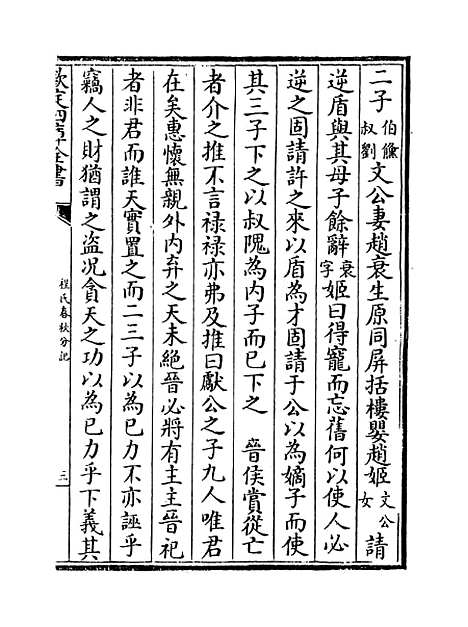 二子伯鯈叔劉文公妻趙衰生原同屏括樓嬰趙姬文公女請
逆盾與其母子餘辭衰字姬曰得寵而忘舊何以使人必
逆之固請許之來以盾為才固請于公以為嫡子而使
其三子下之以叔隗為内子而已下之 晉侯賞從亡
者介之推不言禄禄亦弗及推曰獻公之子九人唯君
在矣惠懷無親外内弃之天未絕晉必將有主主晉祀
者非君而誰天實置之而二三子以為已力不亦誣乎
竊人之財猶謂之盜况貪天之功以為已力乎下義其
欽定四庫全書
程氏春秋分記
三